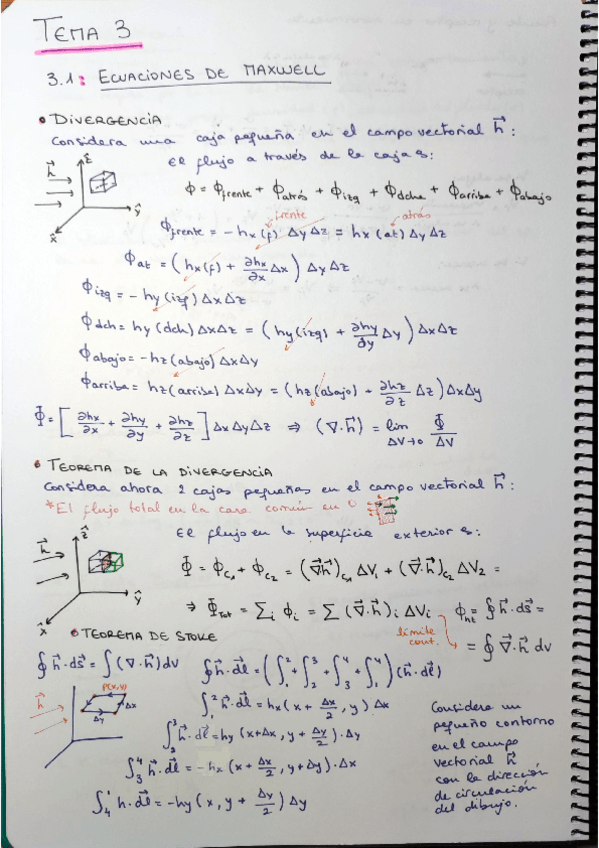 TEMA 3
3.1: ECUACIONES DE MAXWELL
• DIVERGENCIA
Considera una caja pequeña en el campo vectorial h⃗ :
El flujo a través de la caja es:
h⃗ ẑ ŷ x
ϕ = ϕfrente + ϕatrás + ϕizq + ϕdcha + ϕarriba + ϕabajo
frente atrás
ϕfrente = - hx (f) Δy Δz = hx (at) Δy Δz
ϕat = ( hx (f) + ∂hx/∂x Δx ) Δy Δz
ϕizq = - hy (izq) Δx Δz
ϕdch = hy (dch) Δx Δz = ( hy (izq) + ∂hy/∂y Δy ) Δx Δz
ϕabajo = - hz (abajo) Δx Δy
ϕarriba = hz (arriba) Δx Δy = ( hz (abajo) + ∂hz/∂z Δz ) Δx Δy
Φ = [ ∂hx/∂x + ∂hy/∂y + ∂hz/∂z ] Δx Δy Δz ⇒ (∇·h⃗) = lim ΔV→0 Φ/ΔV
• TEOREMA DE LA DIVERGENCIA
Considera ahora 2 cajas pequeñas en el campo vectorial h⃗ :
*El flujo total en la cara común en 0
El flujo en la superficie exterior es:
h⃗ ẑ ŷ x̂
Φ = ϕc₁ + ϕc₂ = (∇⃗h⃗)c₁ ΔV₁ + (∇⃗·h⃗)c₂ ΔV₂ =
⇒ ΦTot = Σi ϕi = Σ (∇⃗·h⃗)i ΔVi ϕnt = ∮ h⃗·ds⃗ =
límite cont. = ∮ ∇⃗·h⃗ dv
• TEOREMA DE STOKE
∮ h⃗·ds⃗ = ∫ (∇·h⃗) dv ∮ h⃗·dl⃗ = ( ∫₁² + ∫₂³ + ∫₃⁴ + ∫₄¹ ) (h⃗·dl⃗)
h⃗ P(x,y) Δx Δy
∫₁² h⃗·dl⃗ = hx (x + Δx/2, y) Δx
∫₂³ h⃗·dl⃗ = hy (x+Δx, y + Δy/2)·Δy
∫₃⁴ h⃗·dl⃗ = - hx (x + Δx/2, y+Δy)·Δx
∫₄¹ h·dl⃗ = - hy (x, y + Δy/2) Δy
Considera un
pequeño contorno
en el campo
vectorial h⃗
con la dirección
de circulación
del dibujo.